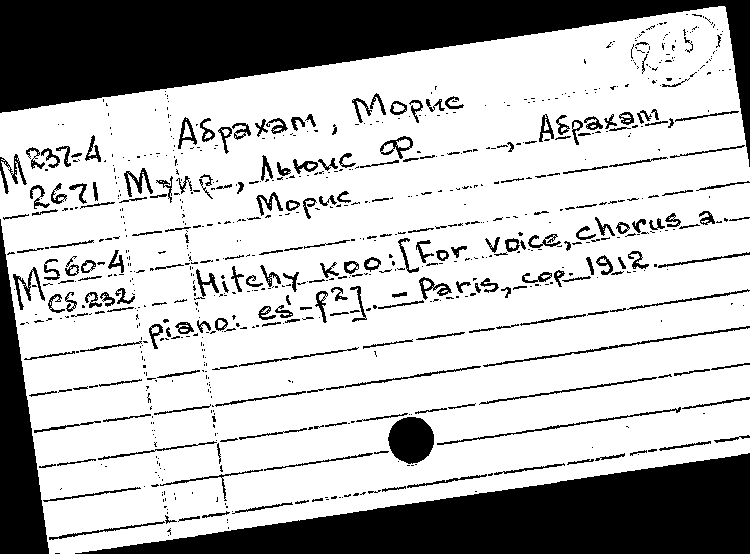 295
Абрахам, Морис
М 237-4
2671
Муир, Льюис Ф. , Абрахам,
Морис
М 560-4
Сб.232
Hitchy koo: [For voice, chorus a.
piano: es¹-f²]. – Paris, cop. 1912.